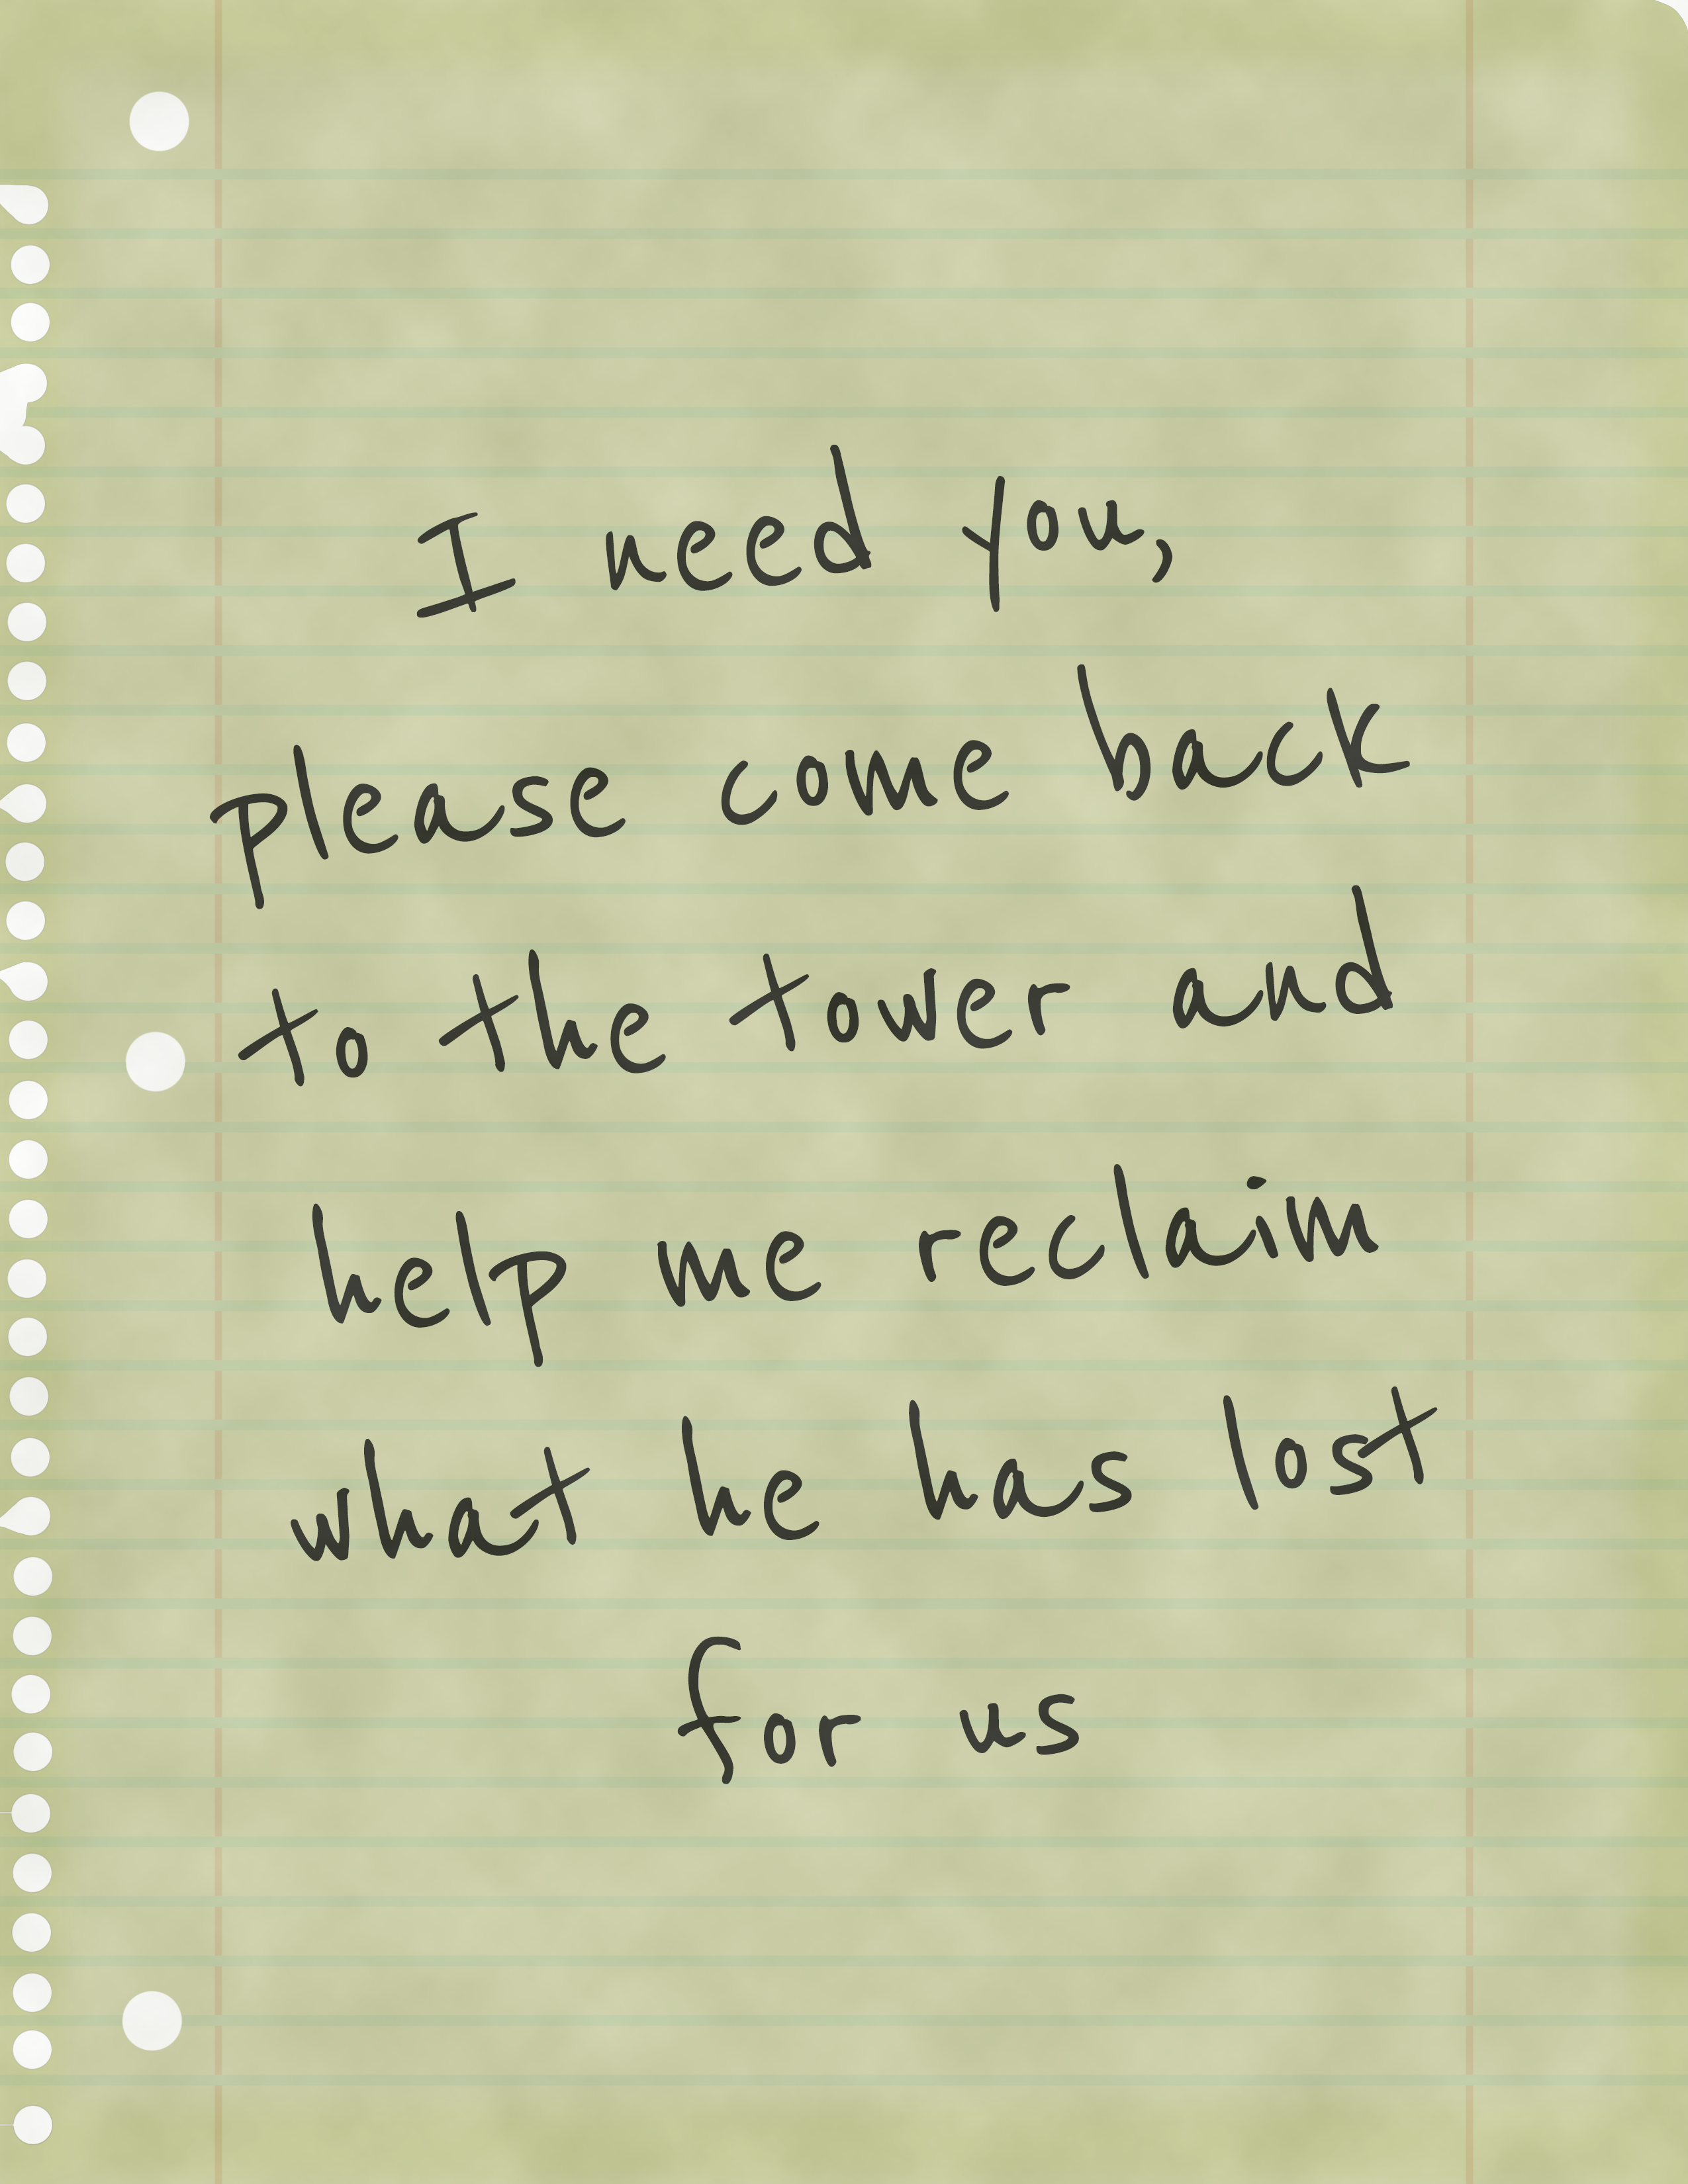 I need you,
please come back
to the tower and
help me reclaim
what he has lost
for us